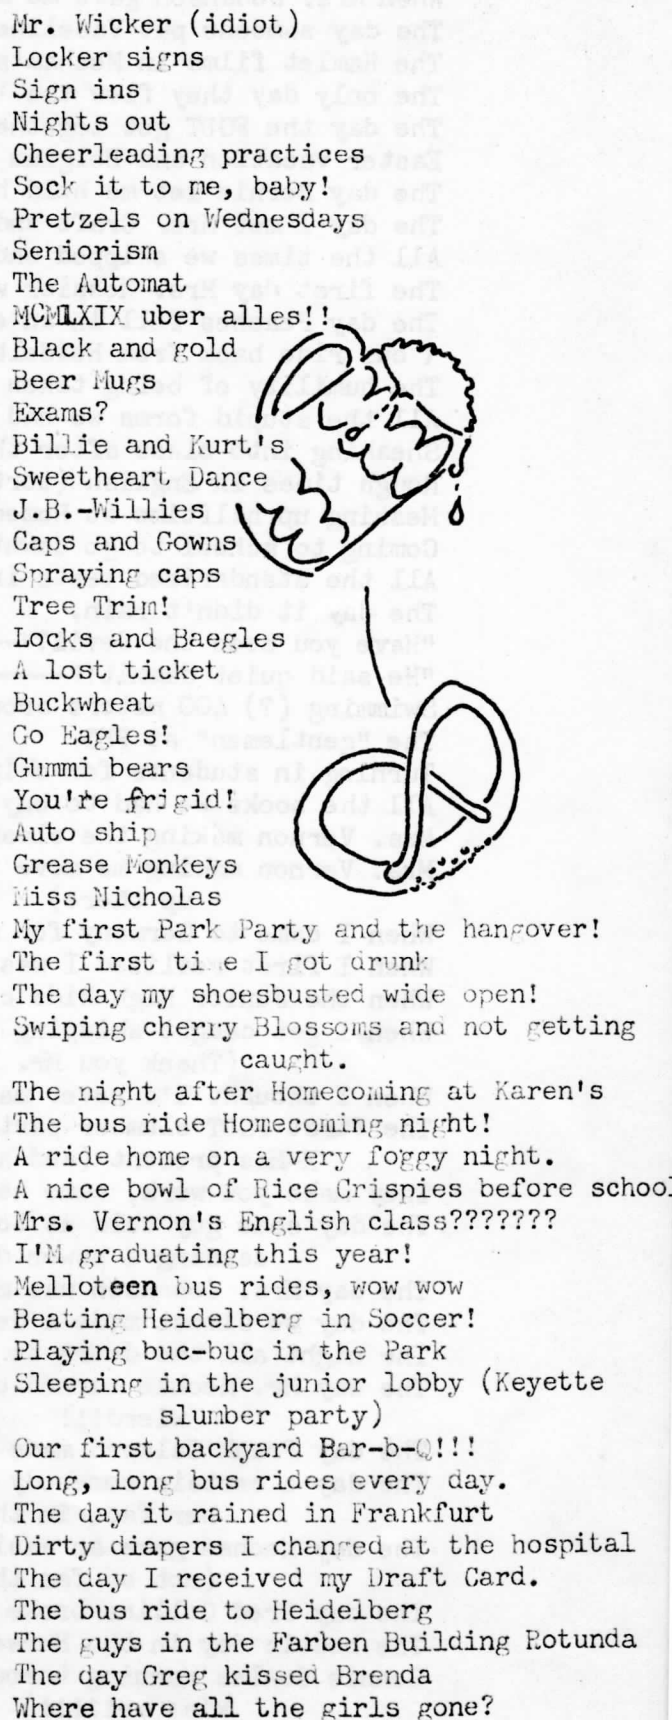 Mr. Wicker (idiot)
Locker signs
Sign ins
Nights out
Cheerleading practices
Sock it to me, baby!
Pretzels on Wednesdays
Seniorism
The Automat
MCMLXIX uber alles!!
Black and gold
Beer Mugs
Exams?
Billie and Kurt's
Sweetheart Dance
J.B.-Willies
Caps and Gowns
Spraying caps
Tree Trim!
Locks and Baegles
A lost ticket
Buckwheat
Go Eagles!
Gummi bears
You're frigid!
Auto ship
Grease Monkeys
Miss Nicholas
My first Park Party and the hangover!
The first ti e I got drunk
The day my shoesbusted wide open!
Swiping cherry Blossoms and not getting
caught.
The night after Homecoming at Karen's
The bus ride Homecoming night!
A ride home on a very foggy night.
A nice bowl of Rice Crispies before school
Mrs. Vernon's English class???????
I'M graduating this year!
Melloteen bus rides, wow wow
Beating Heidelberg in Soccer!
Playing buc-buc in the Park
Sleeping in the junior lobby (Keyette
slumber party)
Our first backyard Bar-b-Q!!!
Long, long bus rides every day.
The day it rained in Frankfurt
Dirty diapers I changed at the hospital
The day I received my Draft Card.
The bus ride to Heidelberg
The guys in the Farben Building Rotunda
The day Greg kissed Brenda
Where have all the girls gone?